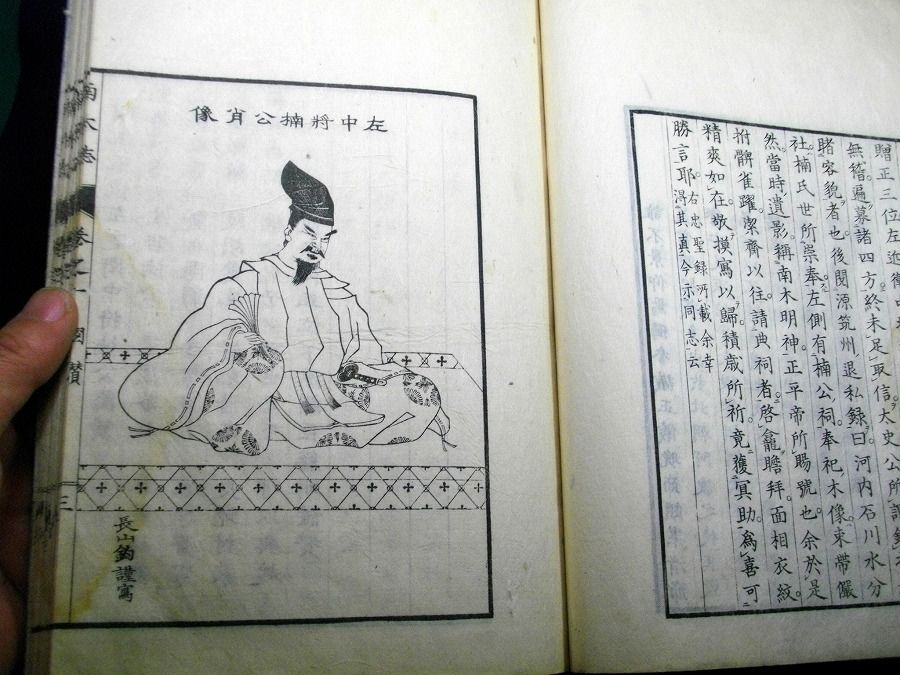 贈正三位左近衛中
無稽。遍募諸四方。終未足取信。太史公所謂
睹容貌者也。後閲源筑州退私録曰。河内石川水分
社。楠氏世所崇奉。左側有楠公祠。奉祀木像。束帶儼
然。當時遺影。稱南木明神。正平帝所賜號也。余於是
拊髀雀躍。潔齊以往。請典祠者。啓龕瞻拜。面相衣紋。
精爽如在。敬摸寫以歸。積歳所祈。竟獲冥助。爲喜可
勝言耶。
右忠聖録所載余幸
得其真今示同志云
左中將楠公肖像
長山鈞謹寫
南木志 卷之一 圖讃 三